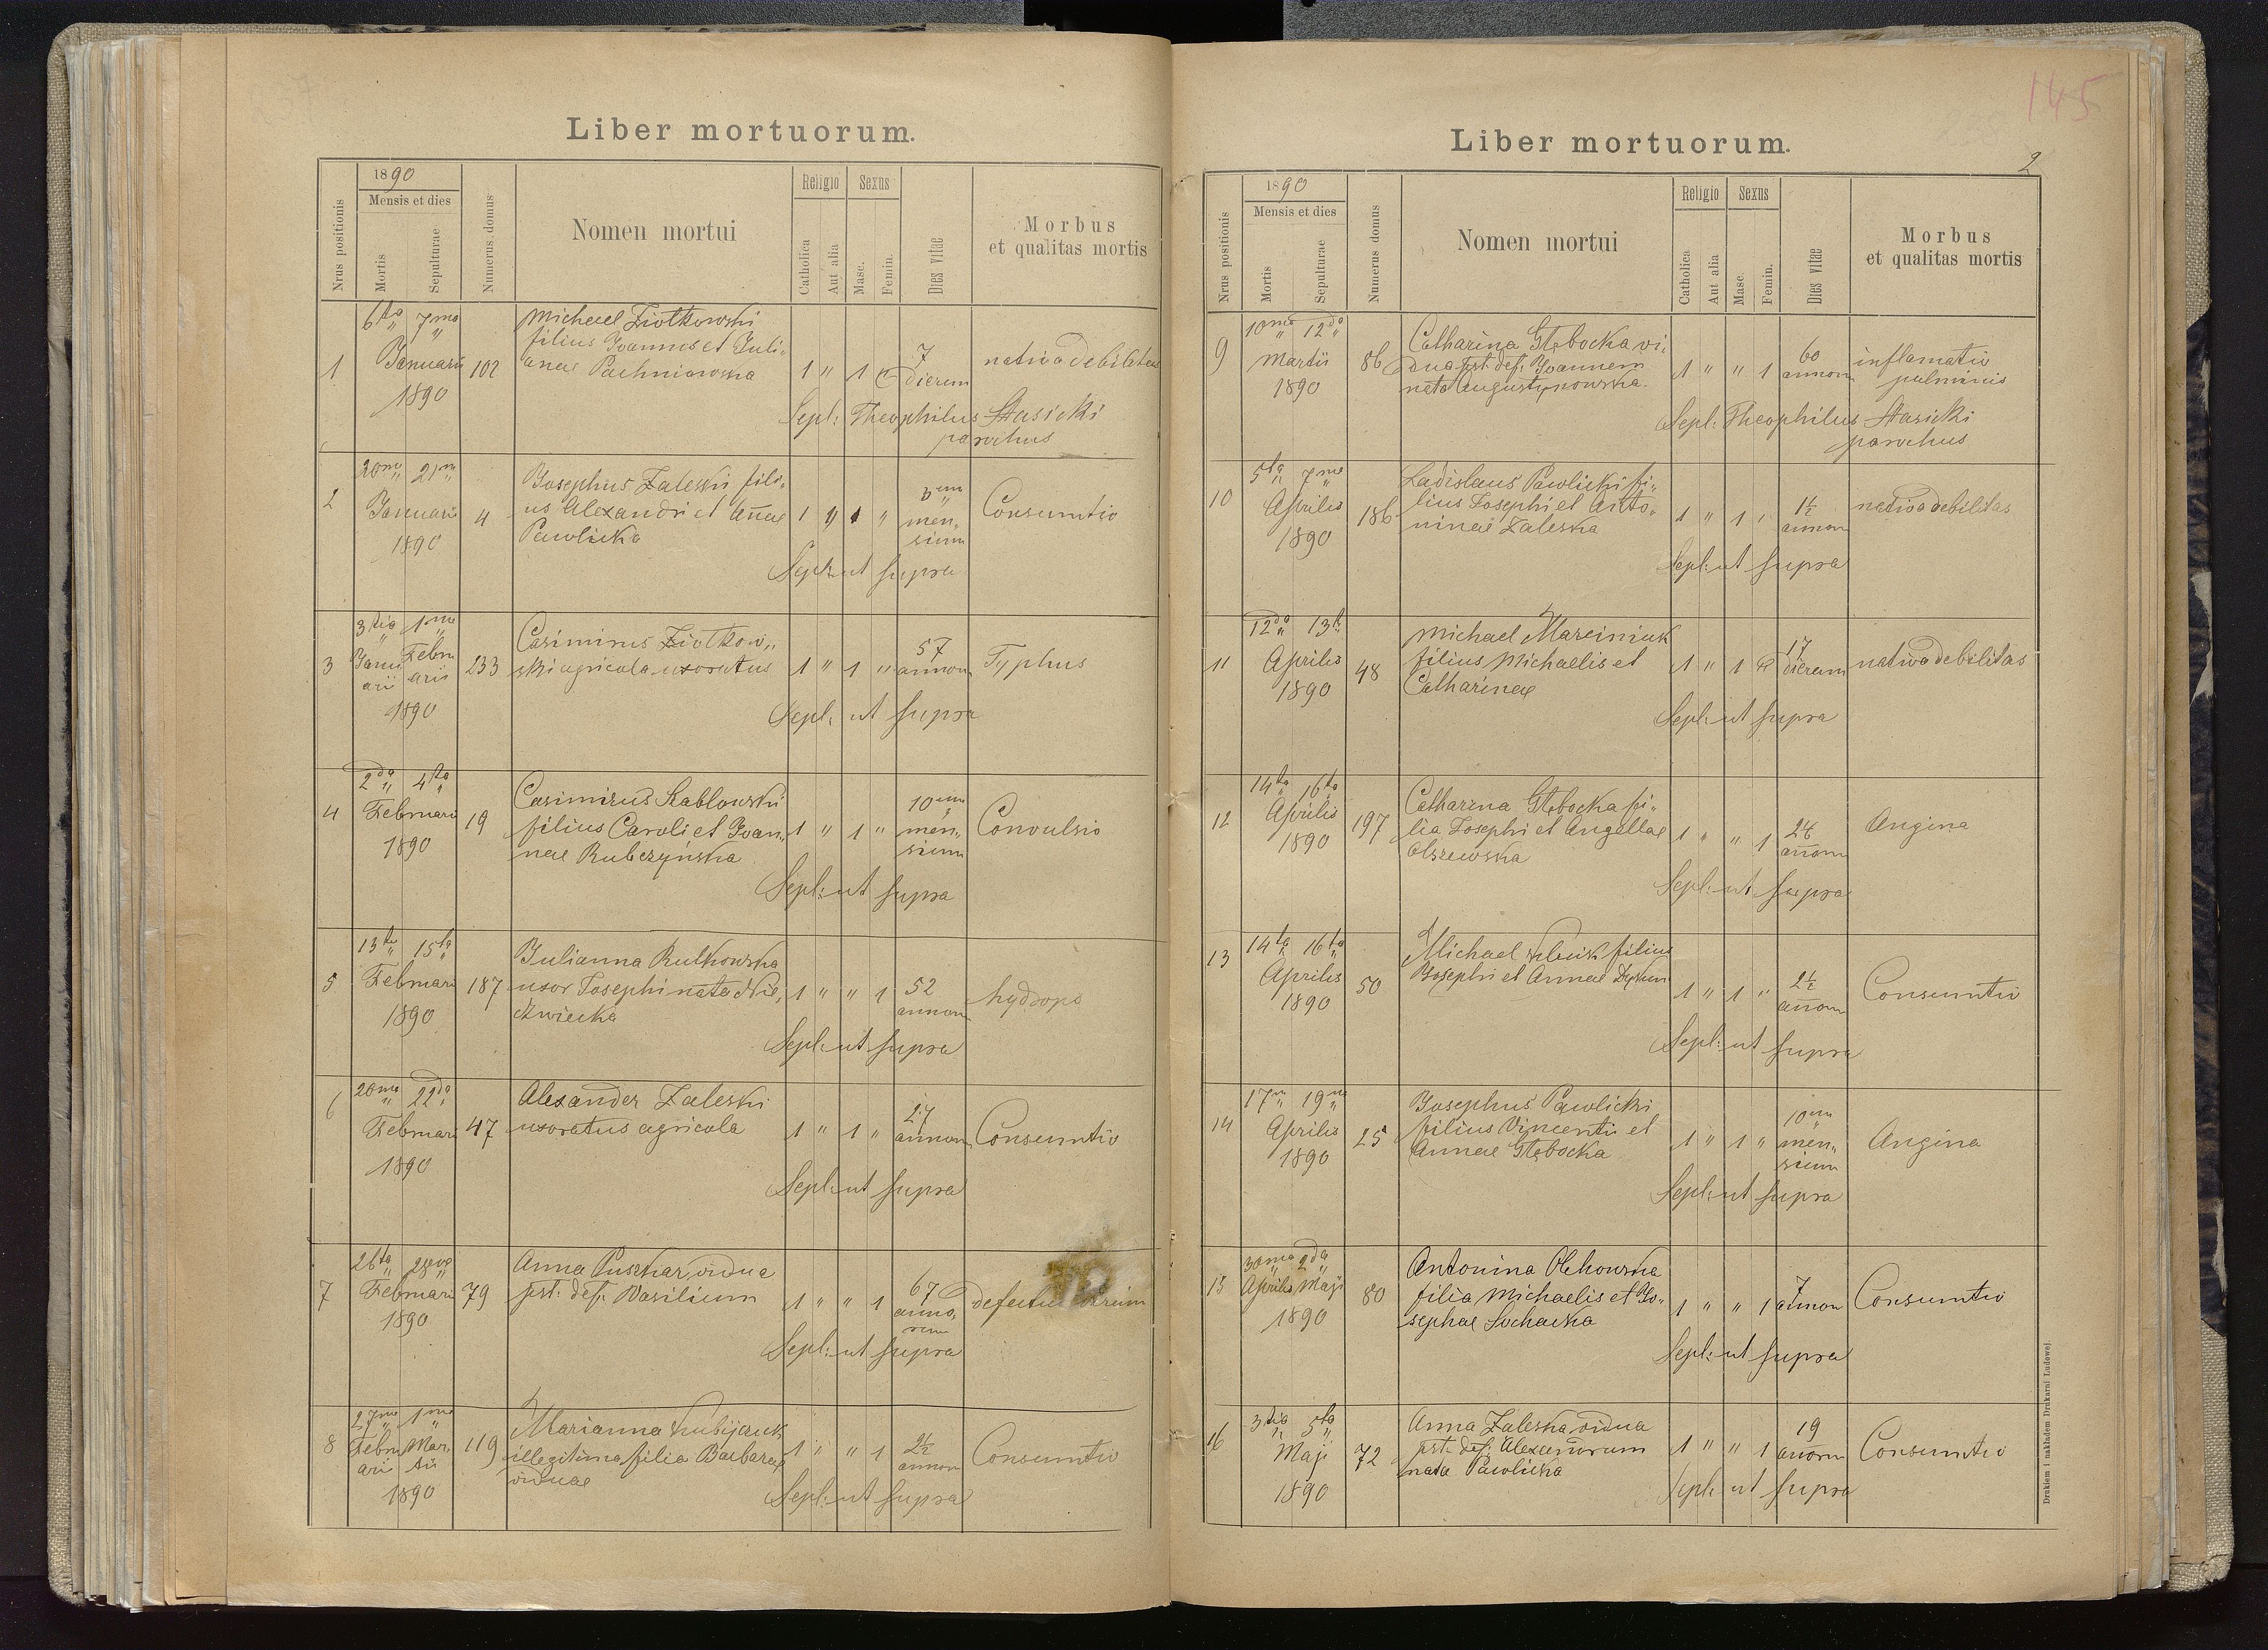 Liber mortuorum.
1890
Mensis et dies
Nrus positionis
Mortis
Sepulturae
Numerus domus
Nomen mortui
Religio
Sexus
Catholica
Aut alia
Masc.
Femin.
Dies vitae
Morbus
et qualitas mortis
1
6ta 7ma
Januarii
1890
102
Michael Ziołkowski
filius Joannis et Juli„
anae Pachniowska
1 „ 1
7
dierum
nativa debilitas
Sepl: Theophilus Stasicki
parochus
2
20ma 21ma
Januarii
1890
4
Josephus Zaleski fili„
us Alexandri et Annae
Pawlicka
1 „ 1 „
3um
men„
sium
Consumtio
Sepl: ut supra
3
3tia 1ma
Janu Febru
arii arii
1890
233
Casimirus Ziołkow„
ski agricola uxoratus
1 „ 1 „
57
annorum
Typhus
Sepl: ut supra
4
2da 4ta
Februarii
1890
19
Casimirus Kabłowski
filius Caroli et Joan„
nae Rubczyńska
1 „ 1 „
10um
men„
sium
Convulsio
Sepl: ut supra
5
13ta 15ta
Februarii
1890
187
Julianna Rutkowska
uxor Josephi nata Nie„
dzwiecka
1 „ „ 1
52
annorum
hydrops
Sepl: ut supra
6
20ma 22da
Februarii
1890
47
Alexander Zaleski
uxoratus agricola
1 „ 1 „
27
annorum
Consumtio
Sepl: ut supra
7
26ta 28va
Februarii
1890
79
Anna Puszkar, vidua
pst: def: Wasilium
1 „ „ 1
67
anno„
rum
defectus virium
Sepl: ut supra
8
27ma 1ma
Febru Mar„
arii tii
1890
119
Marianna Kubijczuk
illegitima filia Barbarae
viduae
1 „ „ 1
2½
annorum
Consumtio
Sepl: ut supra
145
Liber mortuorum.
2
1890
Mensis et dies
Nrus positionis
Mortis
Sepulturae
Numerus domus
Nomen mortui
Religio
Sexus
Catholica
Aut alia
Masc.
Femin.
Dies vitae
Morbus
et qualitas mortis
9
10ma 12da
Martii
1890
86
Catharina Głębocka vi„
dua pst: def: Joannem
nata Augustynowska.
1 „ „ 1
60
annorum
inflamatio
pulminis
Sepl: Theophilus Stasicki
parochus
10
5ta 7ma
Aprilis
1890
186
Ladislaus Pawlicki fi„
lius Josephi et Anto„
ninae Zaleska
1 „ 1 „
1½
annorum
nativa debilitas
Sepl: ut supra
11
12da 13ta
Aprilis
1890
48
Michael Marciniuk
filius Michaelis et
Catharinae
1 „ 1
17
dierum
nativa debilitas
Sepl: ut supra
12
14ta 16ta
Aprilis
1890
197
Catharina Głębocka fi„
lia Josephi et Angellae
Olszewska
1 „ „ 1
annorum
Angina
Sepl: ut supra
13
14ta 16ta
Aprilis
1890
50
Michael filius
Josephi et Annae
1 „ 1 „
2½
annorum
Consumtio
Sepl: ut supra
14
17ma 19na
Aprilis
1890
25
Josephus Pawlicki
filius Vincentii et
Annae Głębocka
1 „ 1 „
10um
men„
sium
Angina
Sepl: ut supra
15
30ma 2da
Aprilis Maji
1890
80
Antonina Olchowska
filia Michaelis et Jo„
sephae Sochacka
1 „ „ 1
7
annorum
Consumtio
Sepl: ut supra
16
3tia 5ta
Maji
1890
72
Anna Zaleska vidua
pst: def: Alexandrum
nata Pawlicka
1 „ „ 1
19
annorum
Consumtio
Sepl: ut supra
Drukiem i nakładem Drukarni Ludowej.